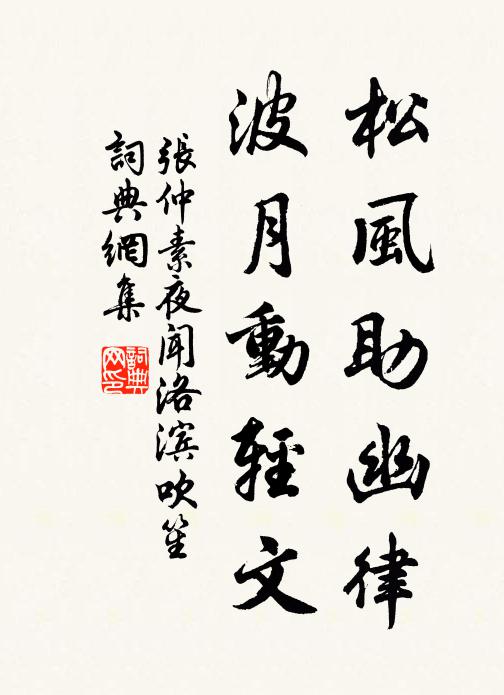 松風助幽律
波月動輕文
張仲素夜聞洛滨吹笙
詞典網集
詞典
网印